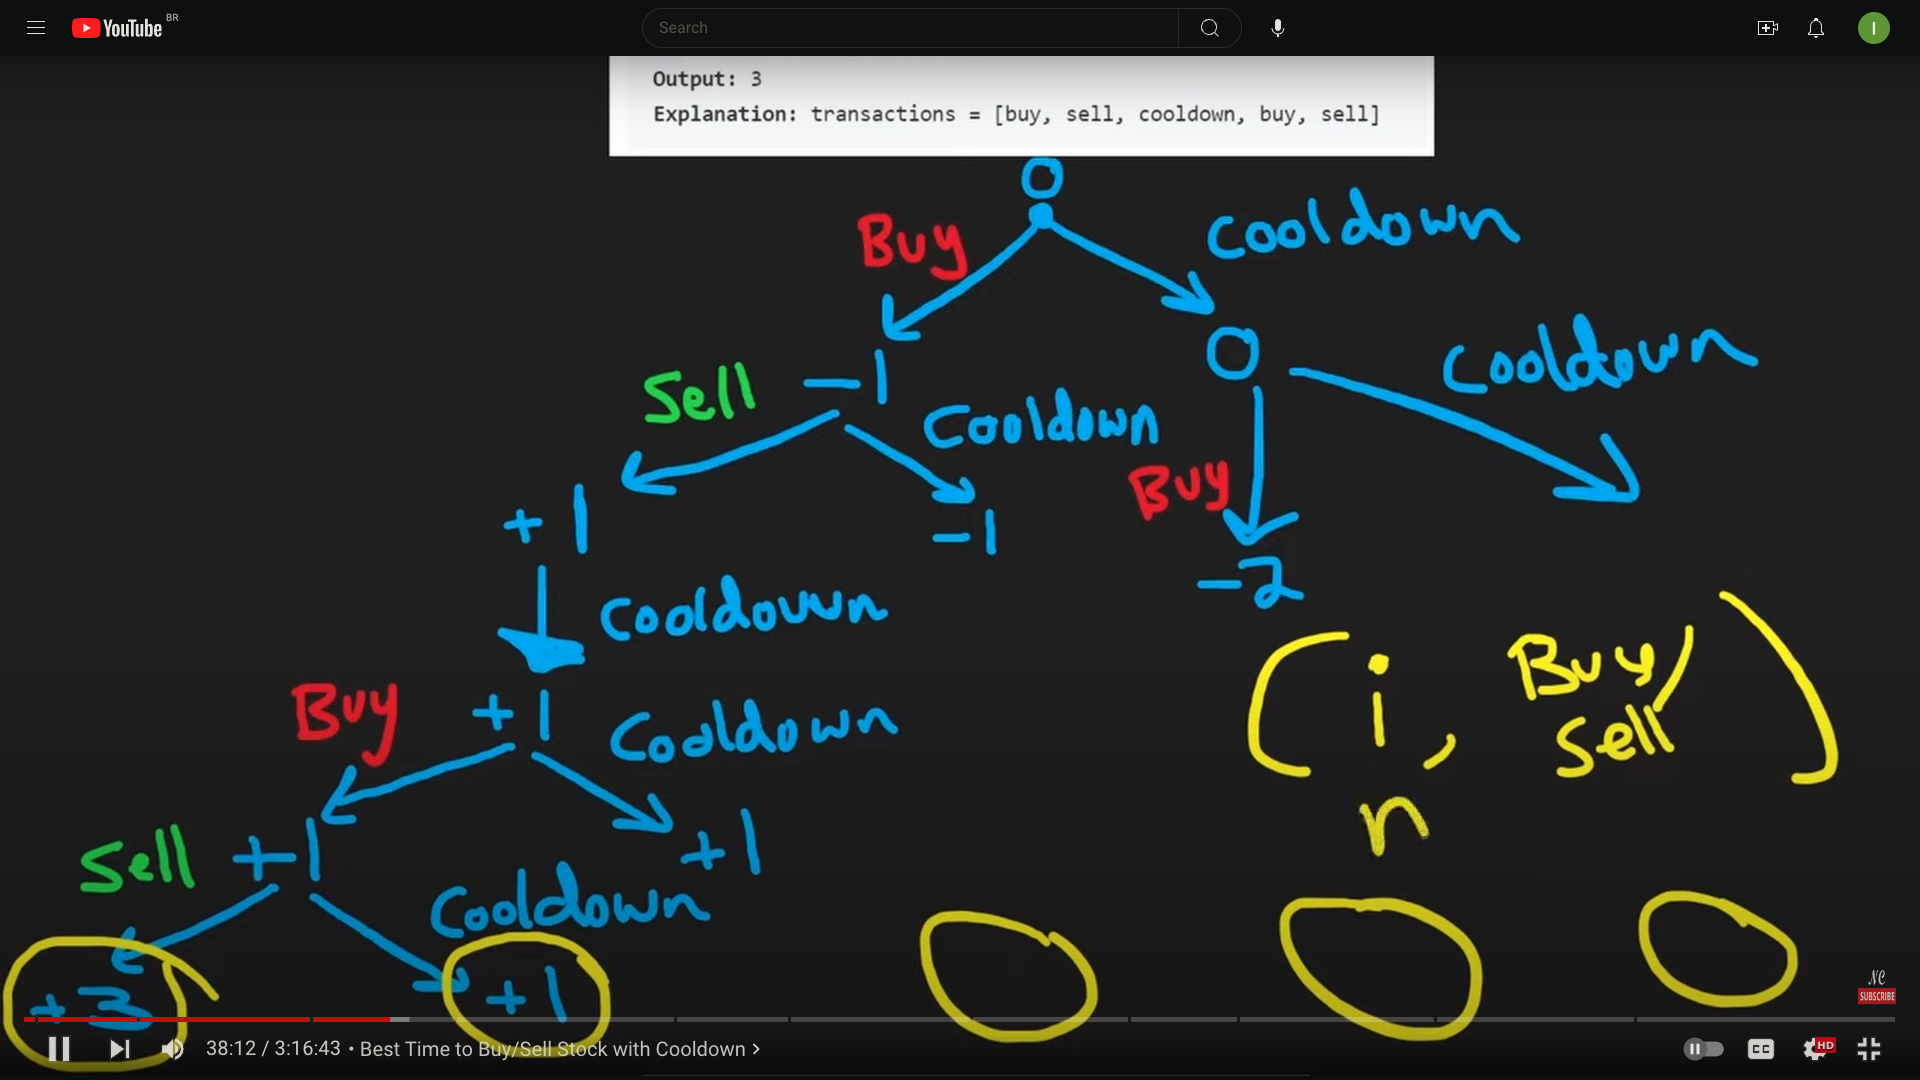 YouTube BR
Search
I
Output: 3
Explanation: transactions = [buy, sell, cooldown, buy, sell]
0
Buy
Cooldown
0
Cooldown
Sell
-1
Cooldown
Buy
+1
-1
-2
Cooldown
(i, Buy/
Sell)
n
Buy
+1
Cooldown
Sell
+1
+1
Cooldown
+3
+1
NC
SUBSCRIBE
38:12 / 3:16:43 • Best Time to Buy/Sell Stock with Cooldown >
CC
HD